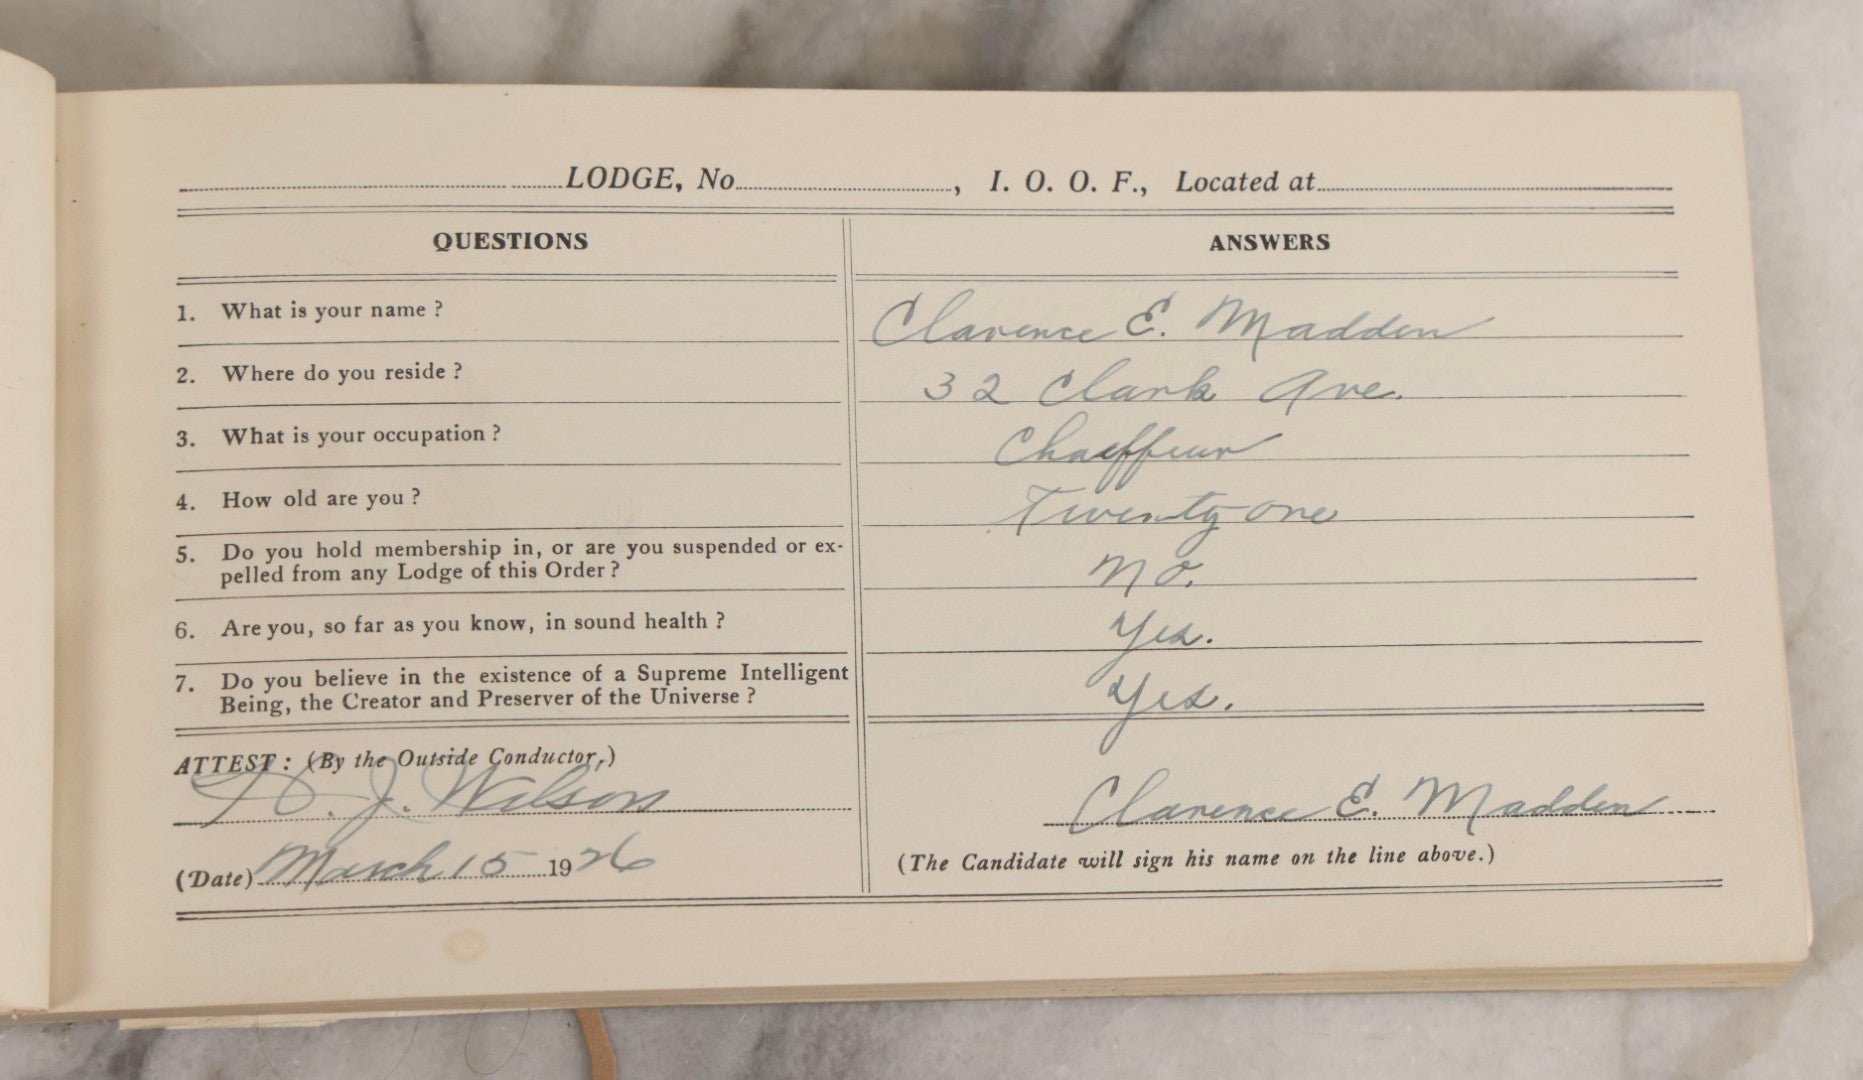 LODGE, No. , I. O. O. F., Located at
QUESTIONS ANSWERS
1. What is your name ? Clarence E. Madden
2. Where do you reside ? 32 Clark Ave.
3. What is your occupation ? Chaeffeur
4. How old are you ? Twenty-one
5. Do you hold membership in, or are you suspended or ex-
pelled from any Lodge of this Order ? No.
6. Are you, so far as you know, in sound health ? Yes.
7. Do you believe in the existence of a Supreme Intelligent
Being, the Creator and Preserver of the Universe ? Yes.
ATTEST : (By the Outside Conductor.)
J. Wilson Clarence E. Madden
(Date) March 15 1926 (The Candidate will sign his name on the line above.)